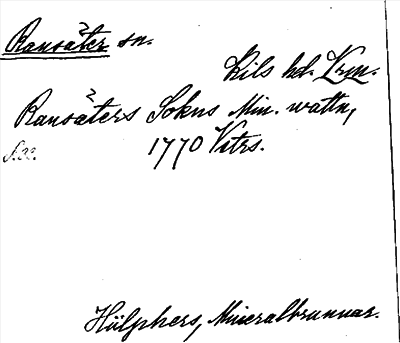 Ransäter sn.
Kils hd. Vrm.
Ransäters Sokns Min. wattn,
1770 Vetrs.
Hülphers, Mineralbrunnar.